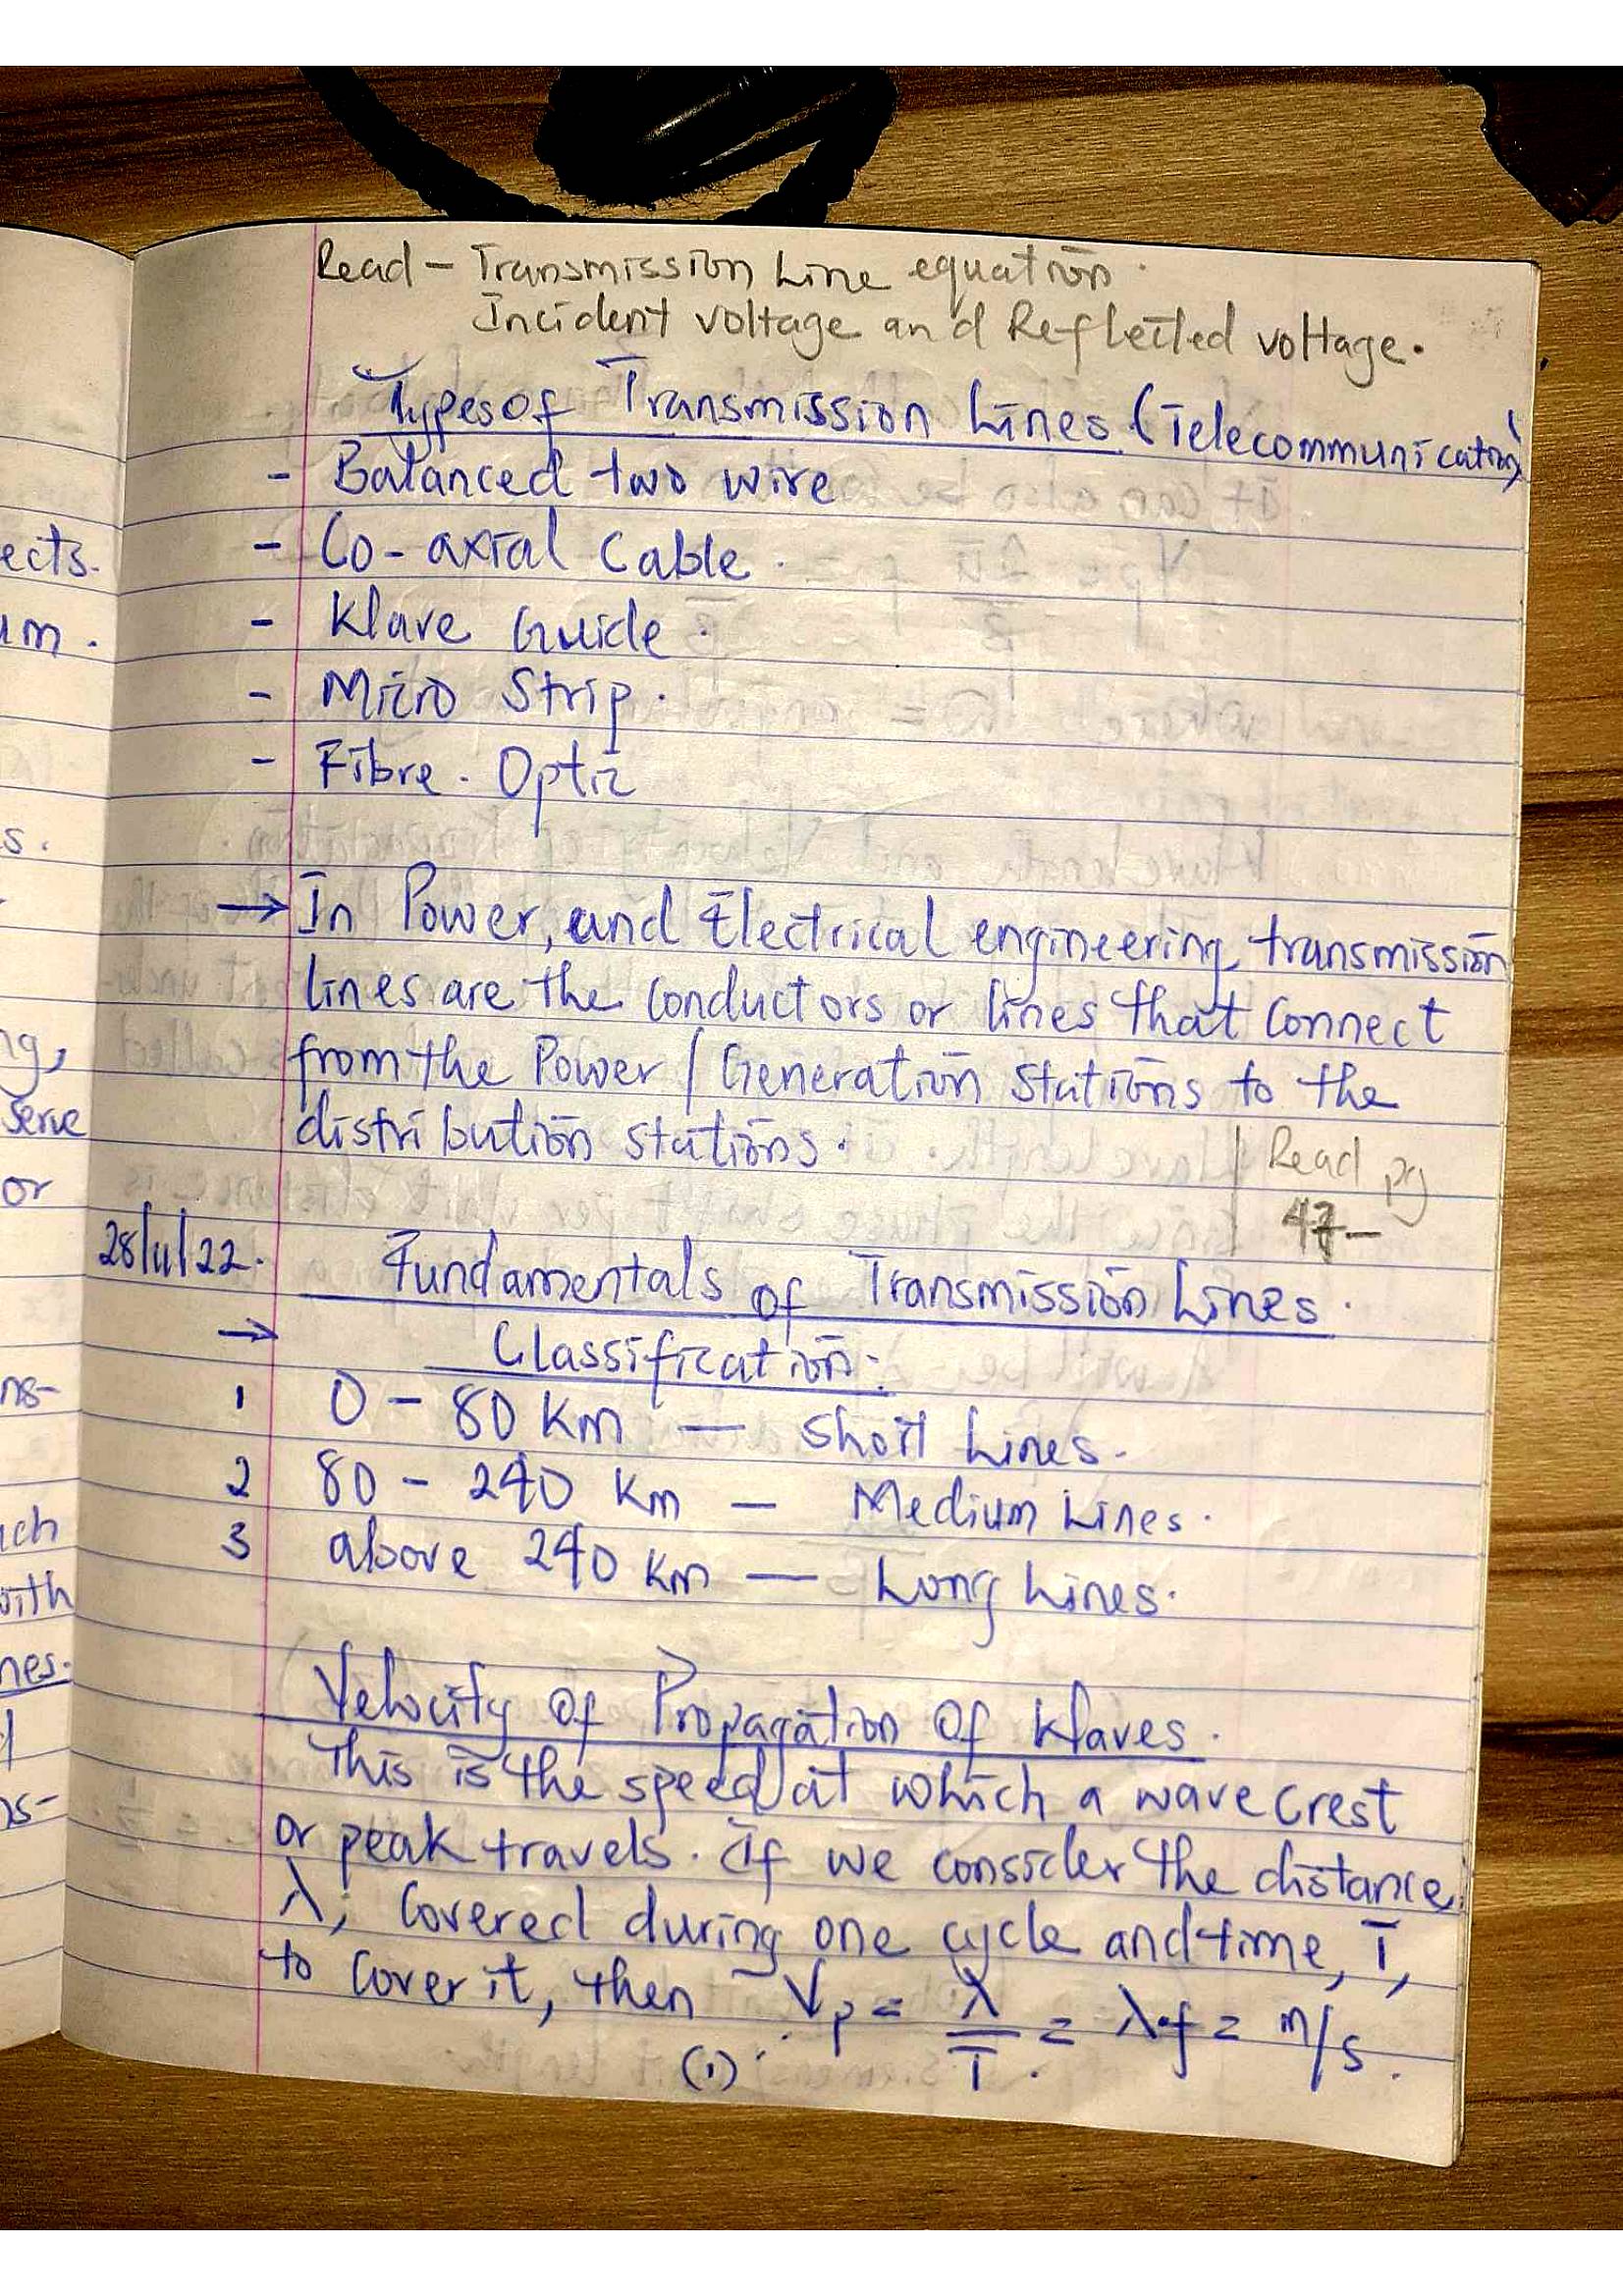 Read - Transmission Line equation.
Incident voltage and Reflected voltage.
Types of Transmission Lines (Telecommunication)
- Balanced two wire
- Co-axial Cable.
- Wave Guide.
- Micro Strip.
- Fibre. Optic
→ In Power, and Electrical engineering, transmission
lines are the conductors or lines that connect
from the Power / Generation stations to the
distribution stations.
Read pg
47-
28/11/22. Fundamentals of Transmission Lines.
→ Classification:
1 0 - 80 Km — Short Lines.
2 80 - 240 Km — Medium Lines.
3 above 240 Km — Long Lines.
Velocity Of Propagation Of Waves.
This is the speed at which a wave crest
or peak travels. If we consider the distance,
λ, Covered during one cycle and time, T,
to Cover it, then Vp = λ/T = λ·f = m/s.
(1)
ects.
um.
s.
ng,
serve
or
ns-
uch
with
nes.
os-